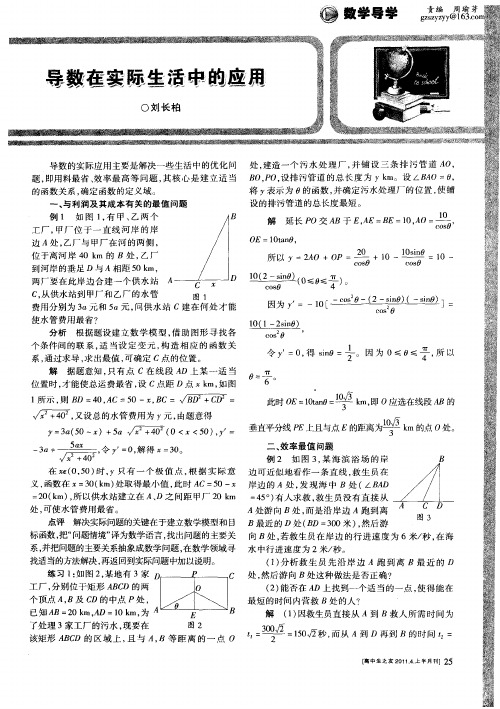 数学导学
责编 周瑜芽
gzszyzyy@163.com
导数在实际生活中的应用
○刘长柏
导数的实际应用主要是解决一些生活中的优化问
题,即用料最省、效率最高等问题,其核心是建立适当
的函数关系,确定函数的定义域。
一、与利润及其成本有关的最值问题
例1 如图1,有甲、乙两个
工厂,甲厂位于一直线河岸的岸
边A处,乙厂与甲厂在河的两侧,
位于离河岸40 km的B处,乙厂
到河岸的垂足D与A相距50 km,
两厂要在此岸边合建一个供水站
C,从供水站到甲厂和乙厂的水管
费用分别为3a元和5a元,问供水站C建在何处才能
使水管费用最省?
B
A C x D
图1
分析 根据题设建立数学模型,借助图形寻找各
个条件间的联系,适当设定变元,构造相应的函数关
系,通过求导,求出最值,可确定C点的位置。
解 据题意知,只有点C在线段AD上某一适当
位置时,才能使总运费最省,设C点距D点x km,如图
1所示,则BD=40,AC=50-x,BC=√(BD²+CD²)=
√(x²+40²),又设总的水管费用为y元,由题意得
y=3a(50-x)+5a√(x²+40²)(0<x<50),y′=
-3a+5ax/√(x²+40²),令y′=0,解得x=30。
在x∈(0,50)时,y只有一个极值点,根据实际意
义,函数在x=30(km)处取得最小值,此时AC=50-x
=20(km),所以供水站建立在A、D之间距甲厂20 km
处,可使水管费用最省。
点评 解决实际问题的关键在于建立数学模型和目
标函数,把“问题情境”译为数学语言,找出问题的主要关
系,并把问题的主要关系抽象成数学问题,在数学领域寻
找适当的方法解决,再返回到实际问题中加以说明。
练习1:如图2,某地有3家
工厂,分别位于矩形ABCD的两
个顶点A、B及CD的中点P处,
已知AB=20 km,AD=10 km,为
了处理3家工厂的污水,现要在
该矩形ABCD的区域上,且与A、B等距离的一点O
D P C
O
A θ E B
图2
处,建造一个污水处理厂,并铺设三条排污管道AO,
BO,PO,设排污管道的总长度为y km。设∠BAO=θ,
将y表示为θ的函数,并确定污水处理厂的位置,使铺
设的排污管道的总长度最短。
解 延长PO交AB于E,AE=BE=10,AO=10/cosθ,
OE=10tanθ,
所以y=2AO+OP=20/cosθ+10-10sinθ/cosθ=10-
10(2-sinθ)/cosθ(0≤θ≤π/4)。
因为y′=-10[(-cos²θ-(2-sinθ)(-sinθ))/cos²θ]=
10(1-2sinθ)/cos²θ,
令y′=0,得sinθ=1/2。因为0≤θ≤π/4,所以
θ=π/6。
此时OE=10tanθ=10√3/3 km,即O应选在线段AB的
垂直平分线PE上,且与点E的距离为10√3/3 km的点O处。
二、效率最值问题
例2 如图3,某海滨浴场的岸
边可近似地看作一条直线,救生员在
岸边的A处,发现海中B处(∠BAD
=45°)有人求救,救生员没有直接从
A处游向B处,而是沿岸边A跑到离
B最近的D处(BD=300米),然后游
向B处,若救生员在岸边的行进速度为6米/秒,在海
水中行进速度为2米/秒。
B
A C D
图3
(1)分析救生员先沿岸边A跑到离B最近的D
处,然后游向B处这种做法是否正确?
(2)能否在AD上找到一个适当的一点,使得能在
最短的时间内营救B处的人?
解 (1)因救生员直接从A到B救人所需时间为
t₁=300√2/2=150√2秒,而从A到D再到B的时间t₂=
[高中生之友2011.4.上半月刊] 25